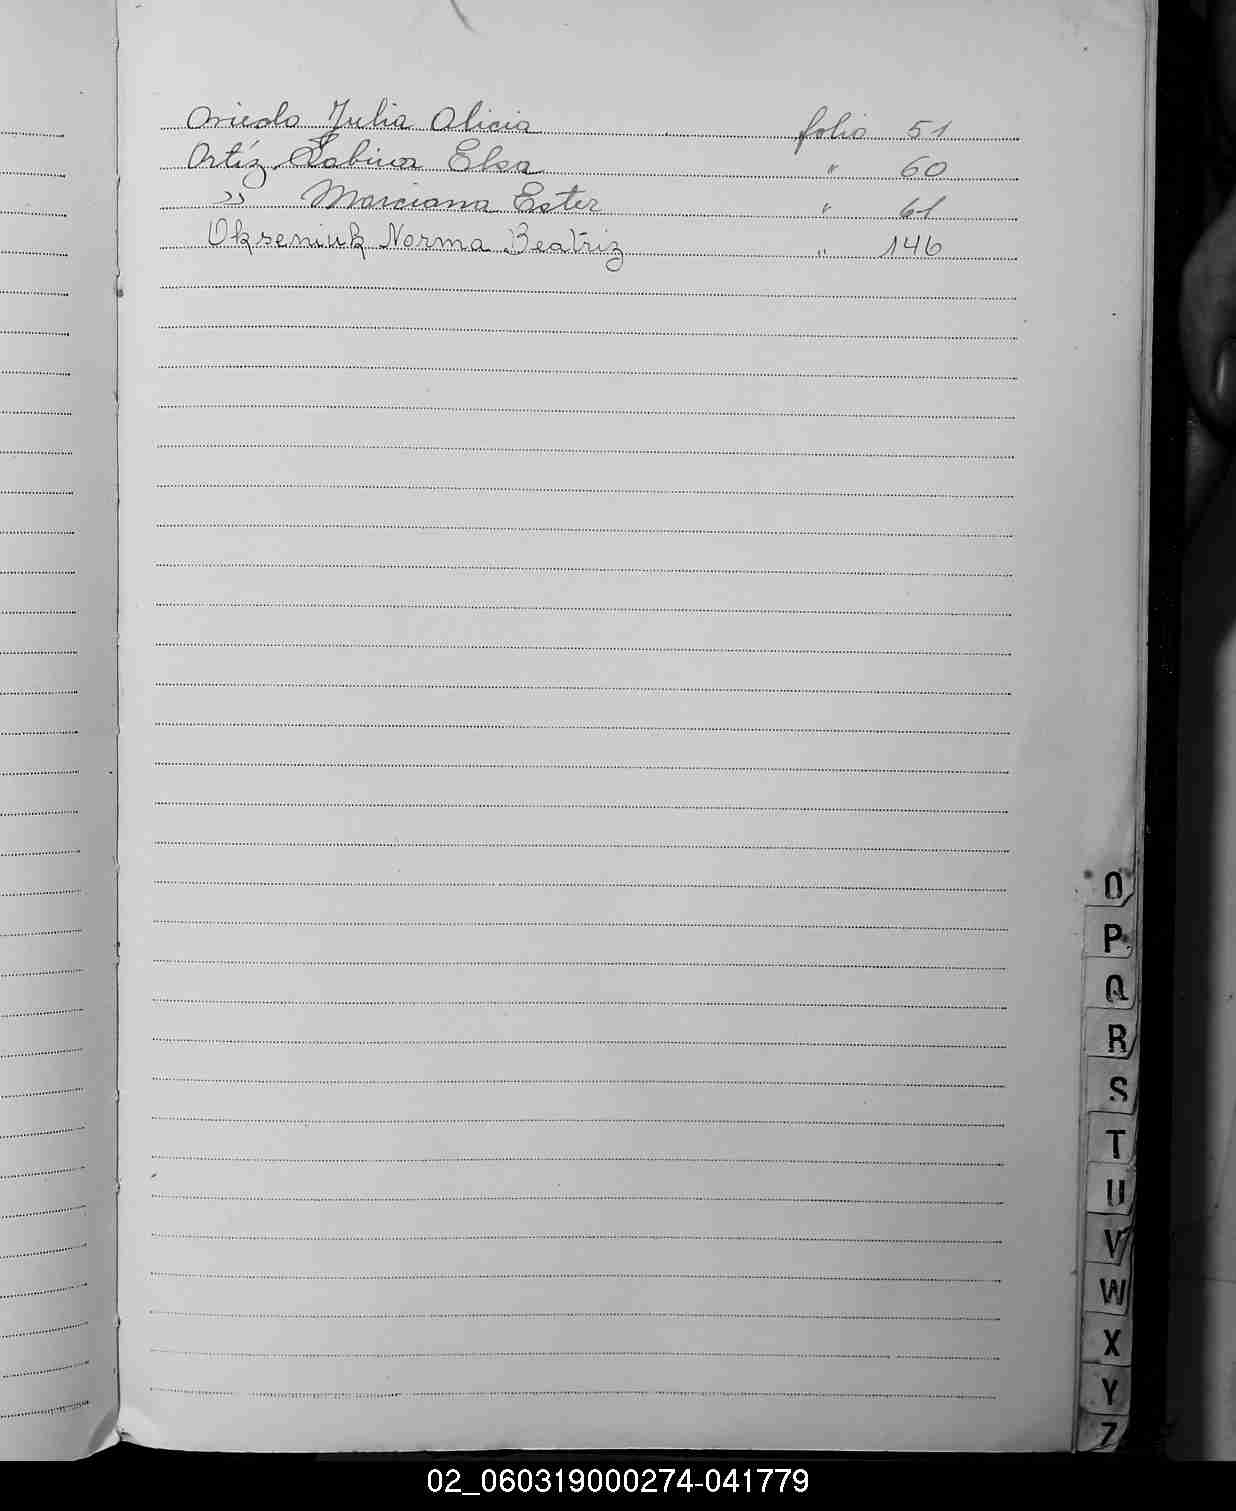 Oviedo Julia Alicia folio 51
Ortíz Sabina Elsa " 60
" Marciana Ester " 61
Okseniuk Norma Beatriz " 146
O
P
Q
R
S
T
U
V
W
X
Y
Z
02_060319000274-041779